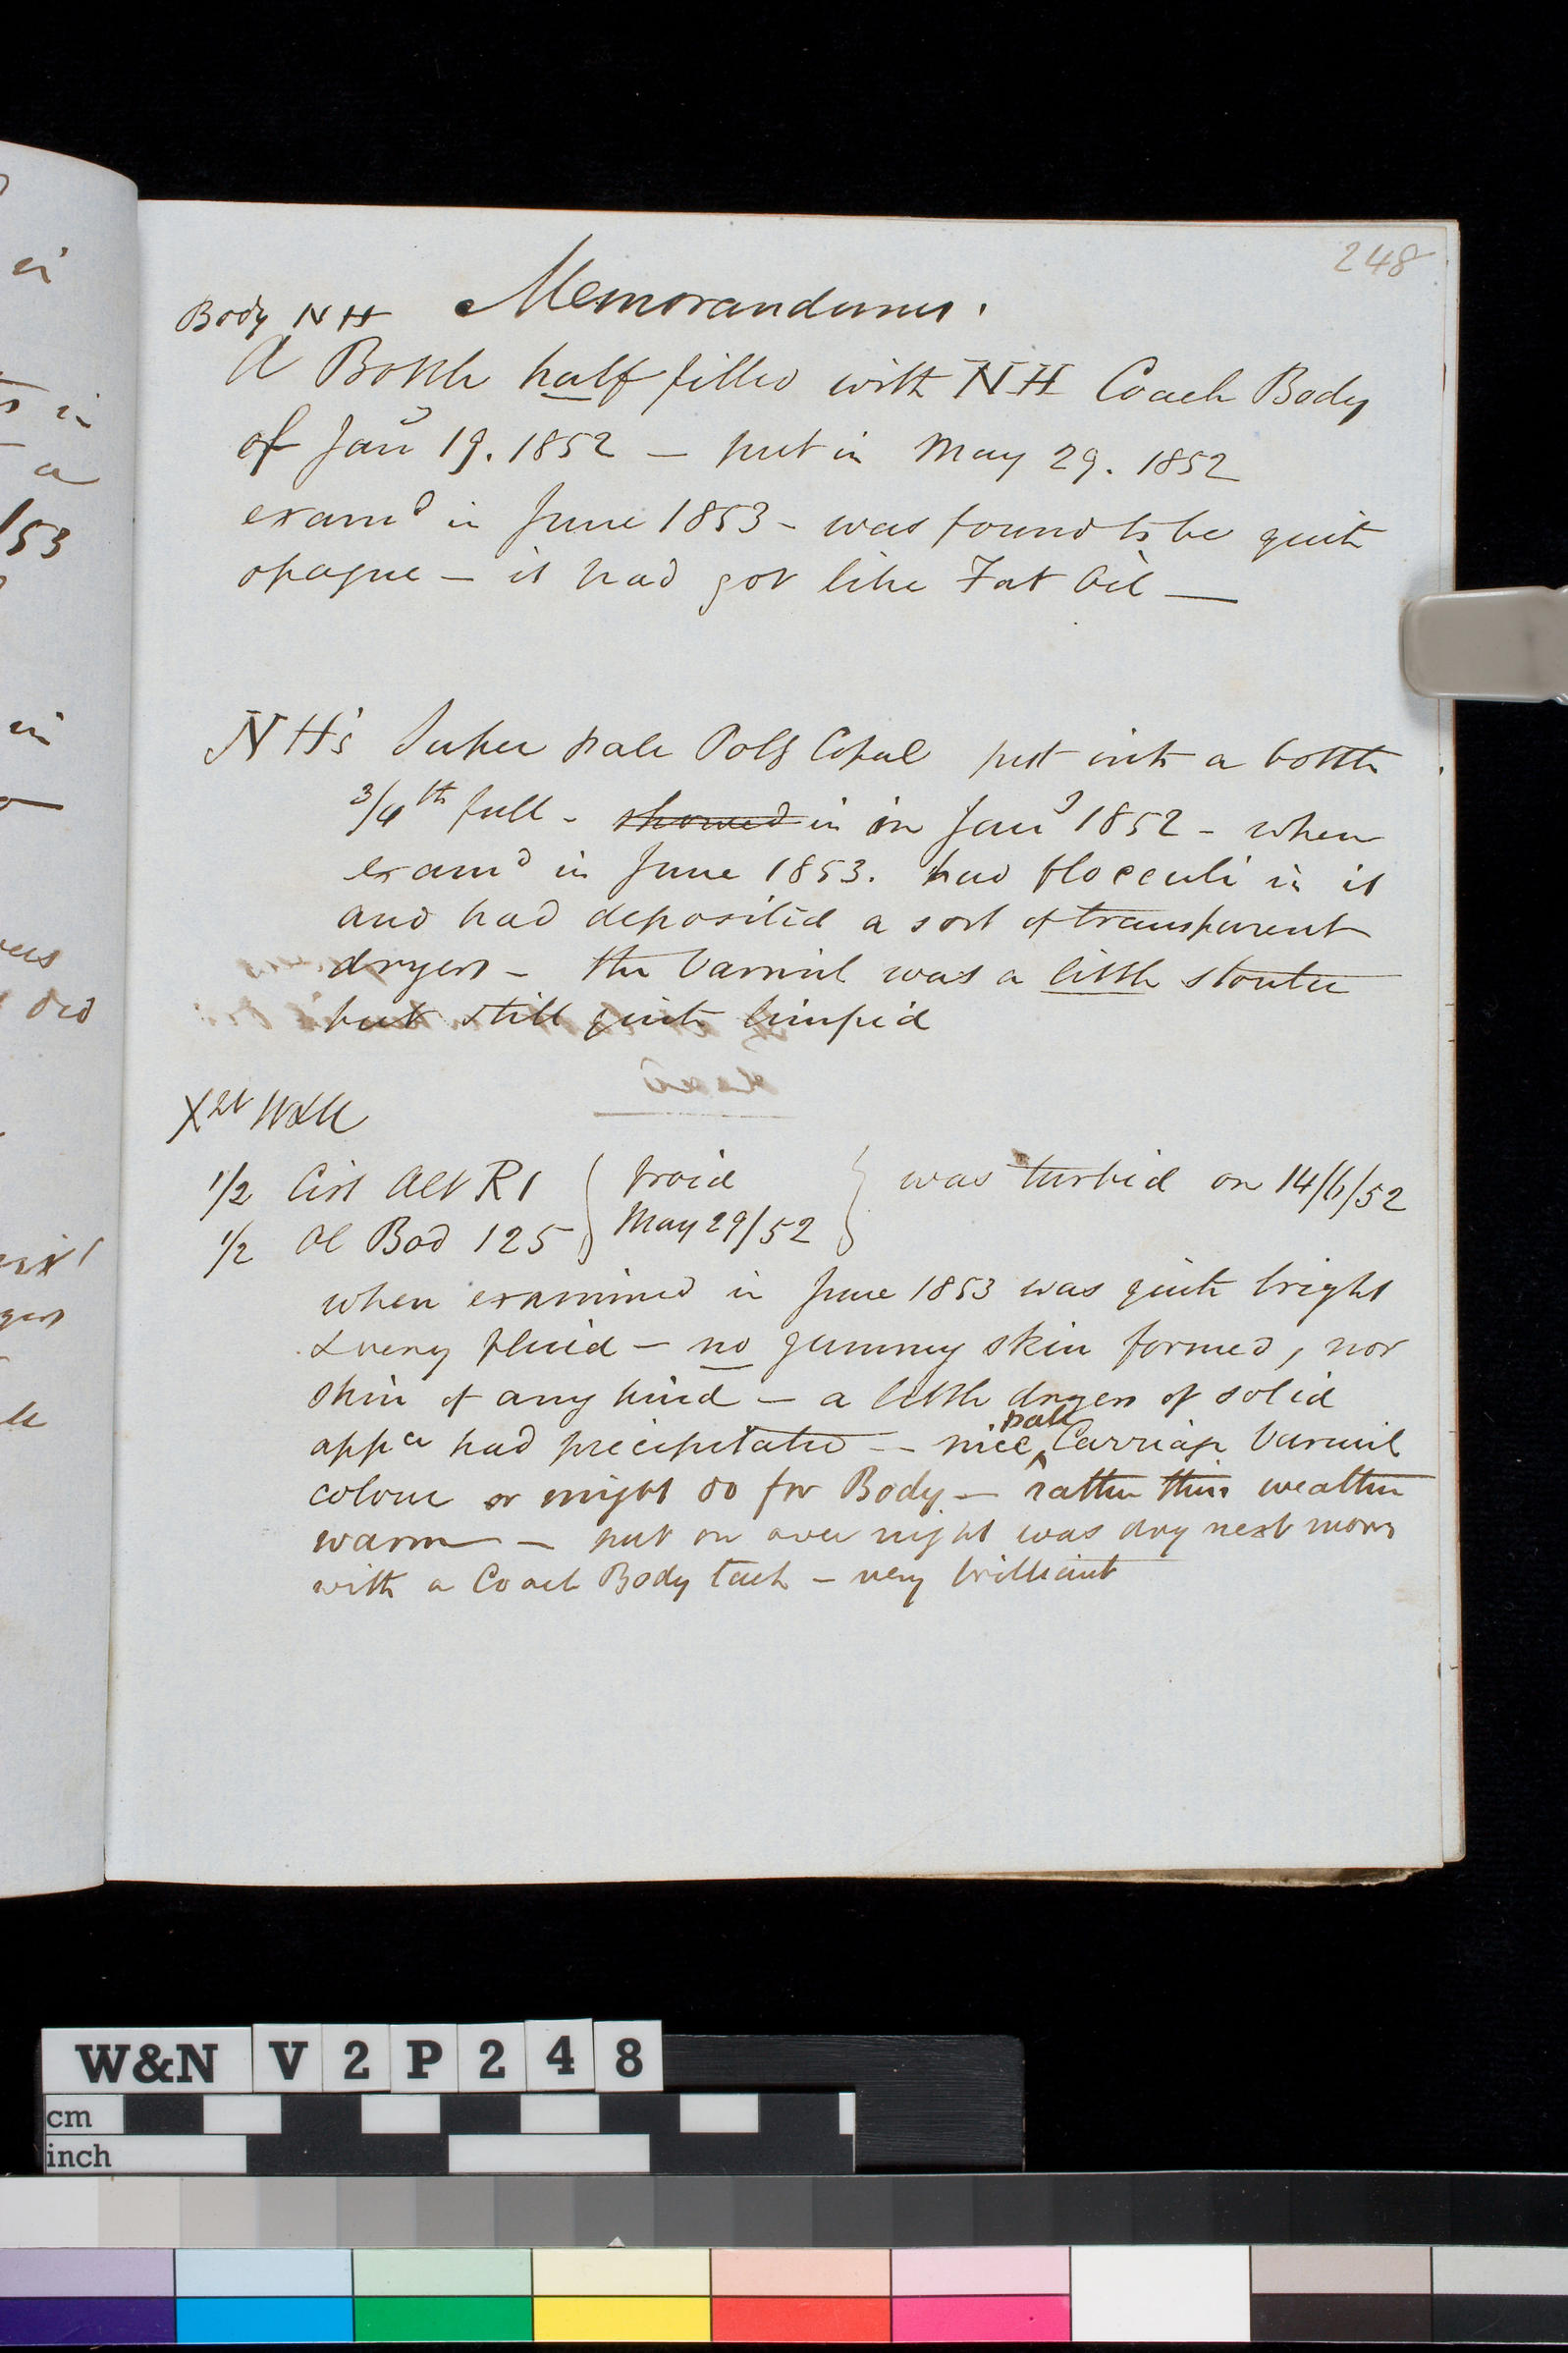 248
Memorandums.
Body NH
A Bottle half filled with NH Coach Body
of Jany 19. 1852 — put in May 29. 1852
examd in June 1853 - was found to be quite
opaque — it had got like Fat Oil —
NH's Super pale Polg Copal put into a bottle
3/4th full - showed in in Jany 1852 - when
examd in June 1853. had flocculi in it
and had deposited a sort of transparent
dryers - the Varnish was a little stouter
but still quite limpid
1/2 Cist Alt R1
1/2 Ol Bod 125
May 29/52
was turbid on 14/6/52
when examined in June 1853 was quite bright
& very fluid — no gummy skin formed, nor
skin of any kind — a little dryers of solid
appce had precipitated — nice pale Carriage Varnish
colour or might do for Body — rather thin weather
warm — put on over night was dry next morng
with a Coach Body tack — very brilliant
/53
in
a
in
did
W&N V2P248
cm
inch